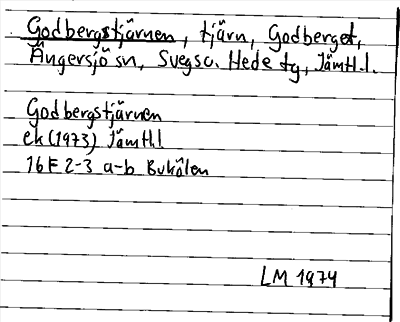 Godbergstjärnen, tjärn, Godberget,
Ängersjö sn, Svegs c. Hede tg, Jämtl.l.
Godbergstjärnen
ek (1973) Jämtl.l
16F 2-3 a-b Bukölen
LM 1974